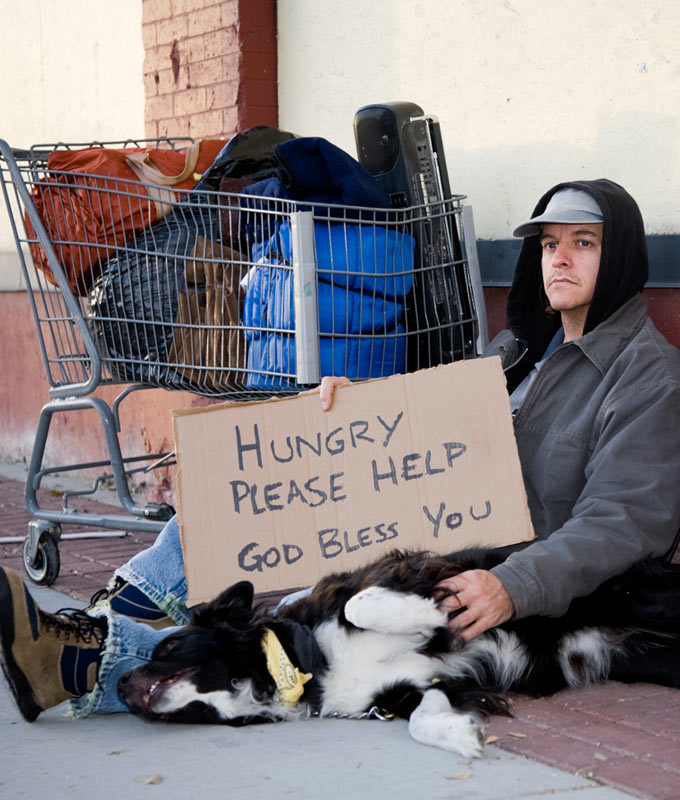 HUNGRY
PLEASE HELP
GOD BLESS YOU